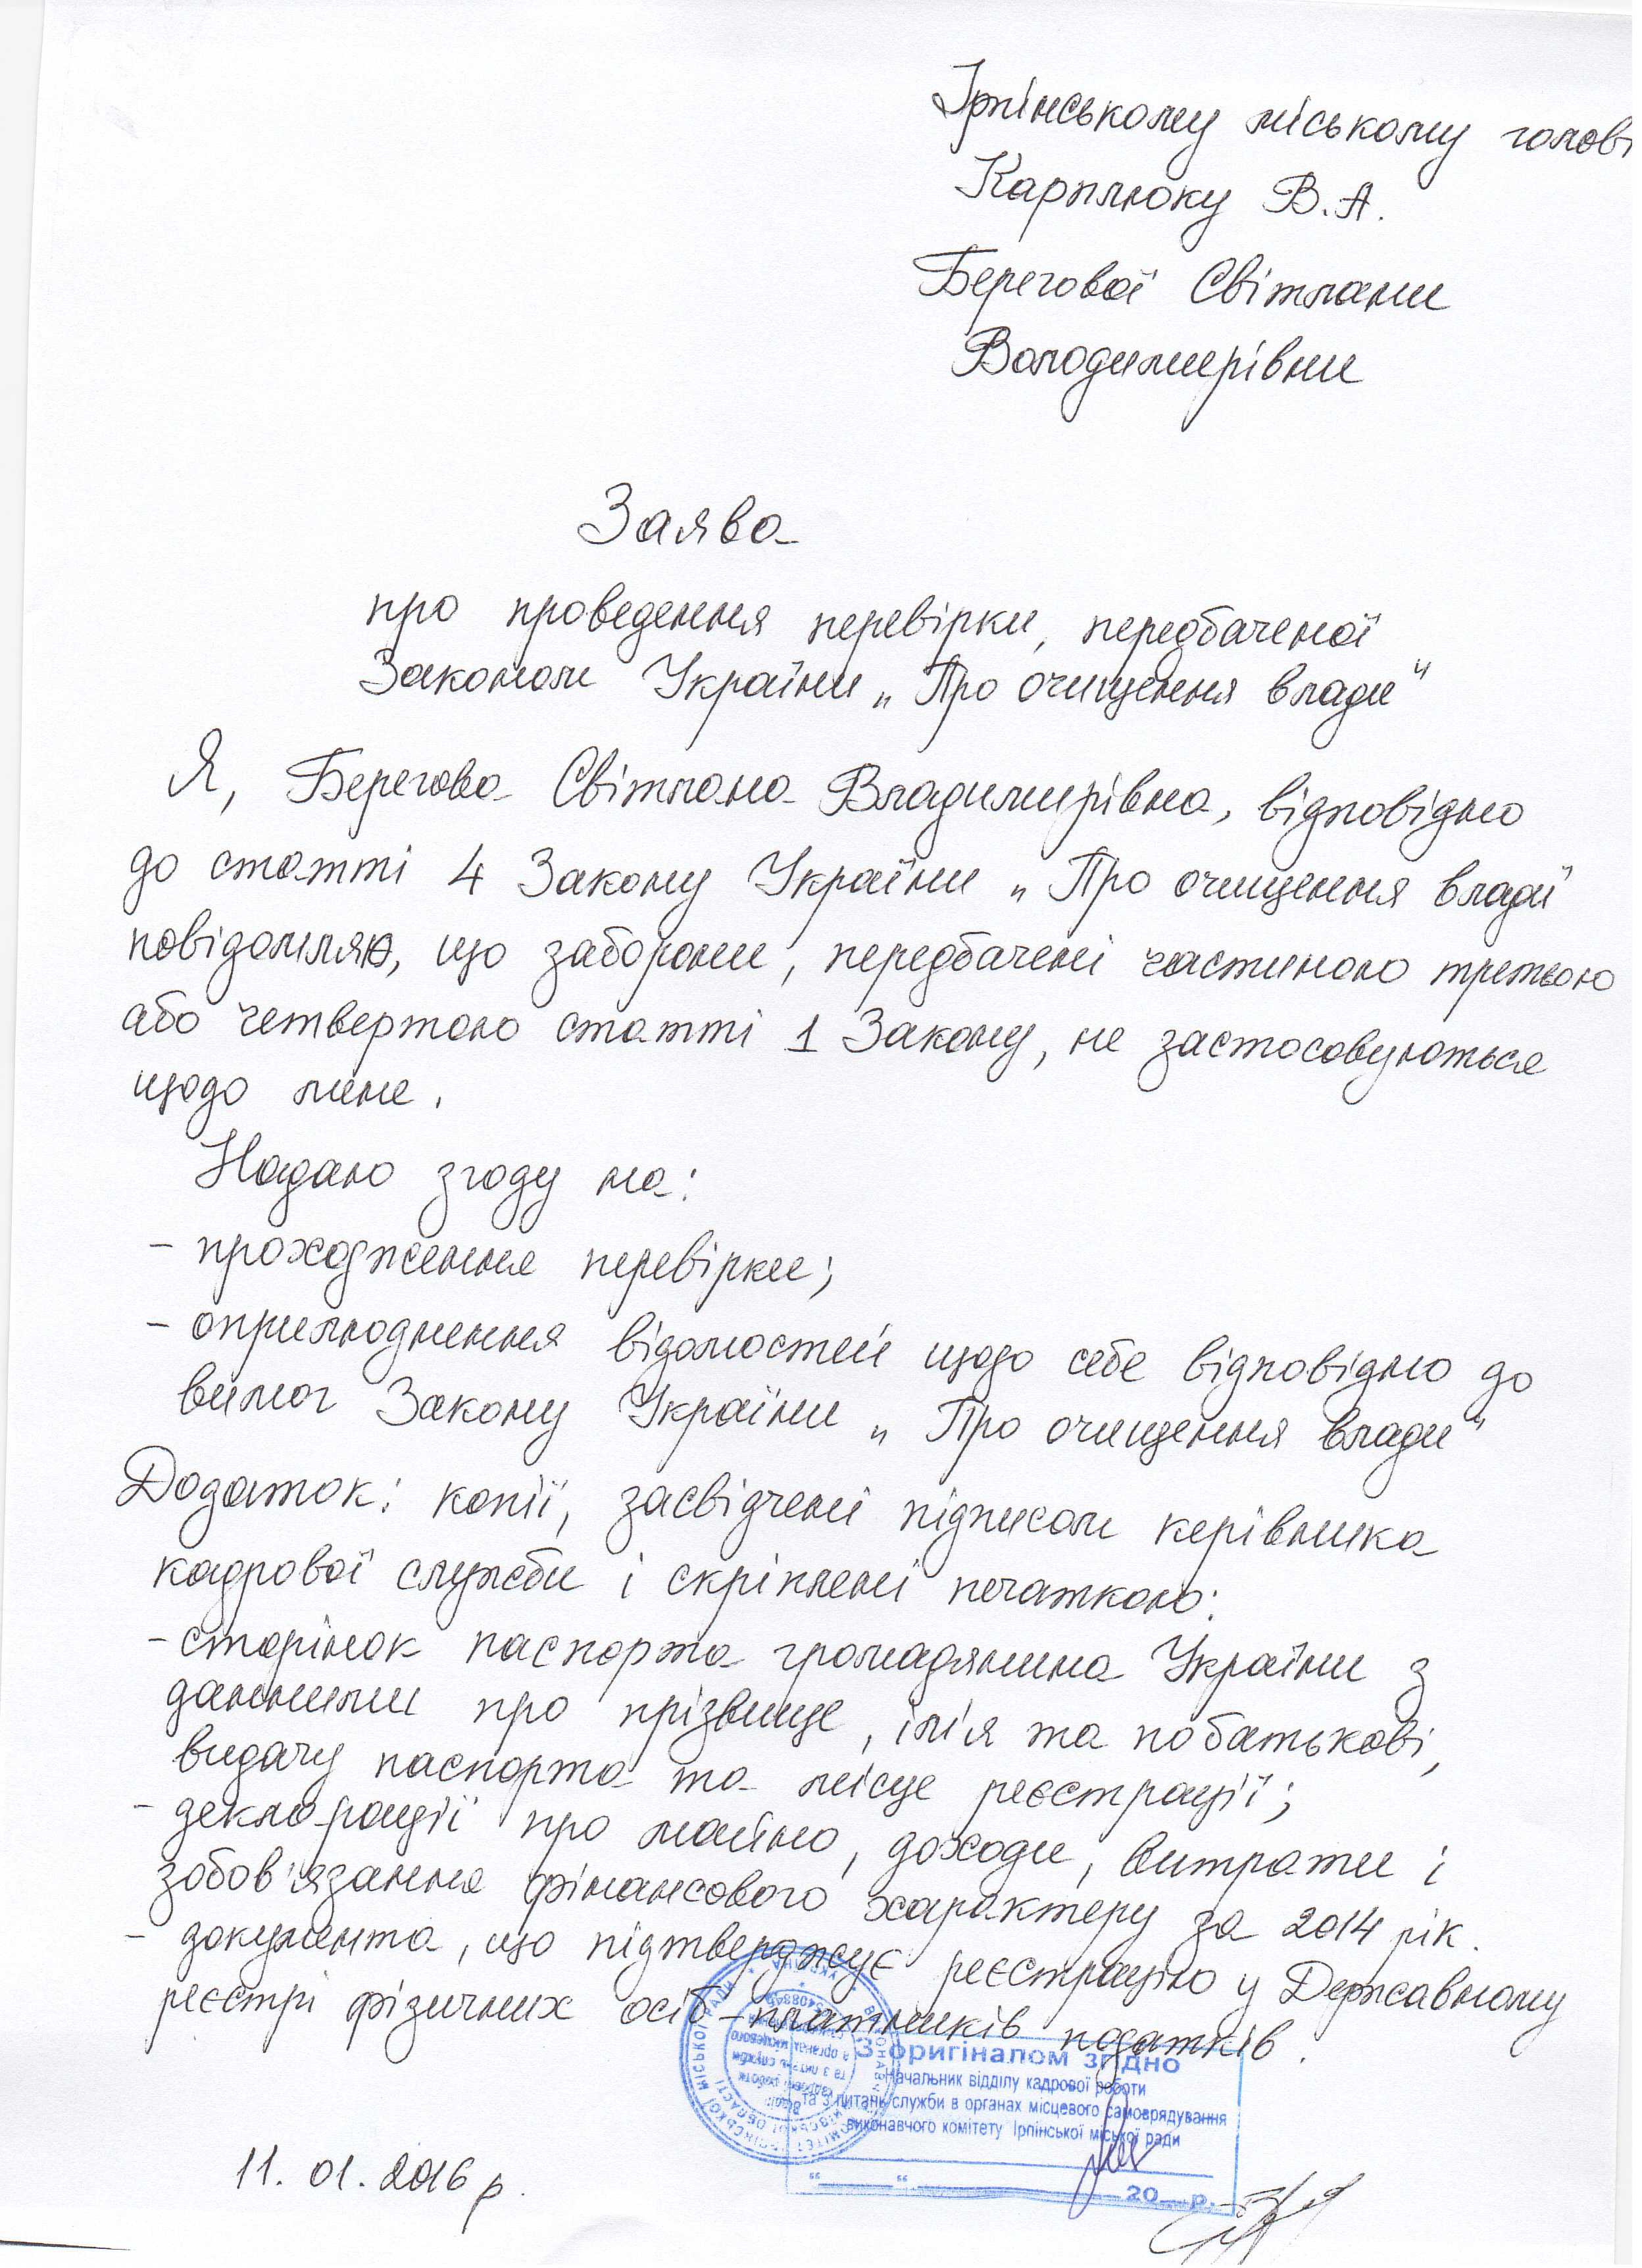 Ірпінському міському голові
Карплюку В.А.
Берегової Світлани
Володимирівни
Заява
про проведення перевірки, передбаченої
Законом України „Про очищення влади"
Я, Берегова Світлана Владимирівна, відповідно
до статті 4 Закону України „Про очищення влади"
повідомляю, що заборони, передбачені частиною третьою
або четвертою статті 1 Закону, не застосовуються
щодо мене.
Надаю згоду на:
- проходження перевірки;
- оприлюднення відомостей щодо себе відповідно до
вимог Закону України „Про очищення влади"
Додаток: копії, засвідчені підписом керівника
кадрової служби і скріплені печаткою:
- сторінок паспорта громадянина України з
данними про прізвище, ім'я та побатькові,
видачу паспорта та місце реєстрації;
- декларації про майно, доходи, витрати і
зобов'язання фінансового характеру за 2014 рік.
- документа, що підтверджує реєстрацію у Державному
реєстрі фізичних осіб-платників податків.
З оригіналом згідно
Начальник відділу кадрової роботи
та з питань служби в органах місцевого самоврядування
виконавчого комітету Ірпінської міської ради
“____“ ____________ 20__ р.
11.01.2016 р.